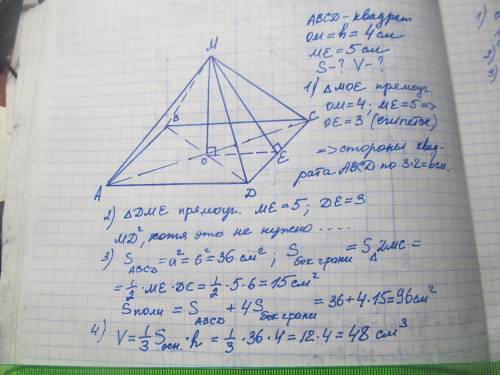 ABCD – квадрат
OM = h = 4 см
ME = 5 см
S - ? V - ?
1) △MOE прямоуг.
OM = 4; ME = 5 =>
OE = 3 (египетск)
=> стороны квад-
рата ABCD по 3·2=6см.
M
B
C
O
E
A
D
2) △DME прямоуг. ME = 5; DE = 3
MD², хотя это не нужно ....
3) S ABCD = a² = 6² = 36 см²; S бок грани = S △ DMC =
= 1/2 · ME · DC = 1/2 · 5 · 6 = 15 см²
S полн = S ABCD + 4S бок грани = 36 + 4·15 = 96 см²
4) V = 1/3 S осн. · h = 1/3 · 36 · 4 = 12 · 4 = 48 см³
1)
2)
3)